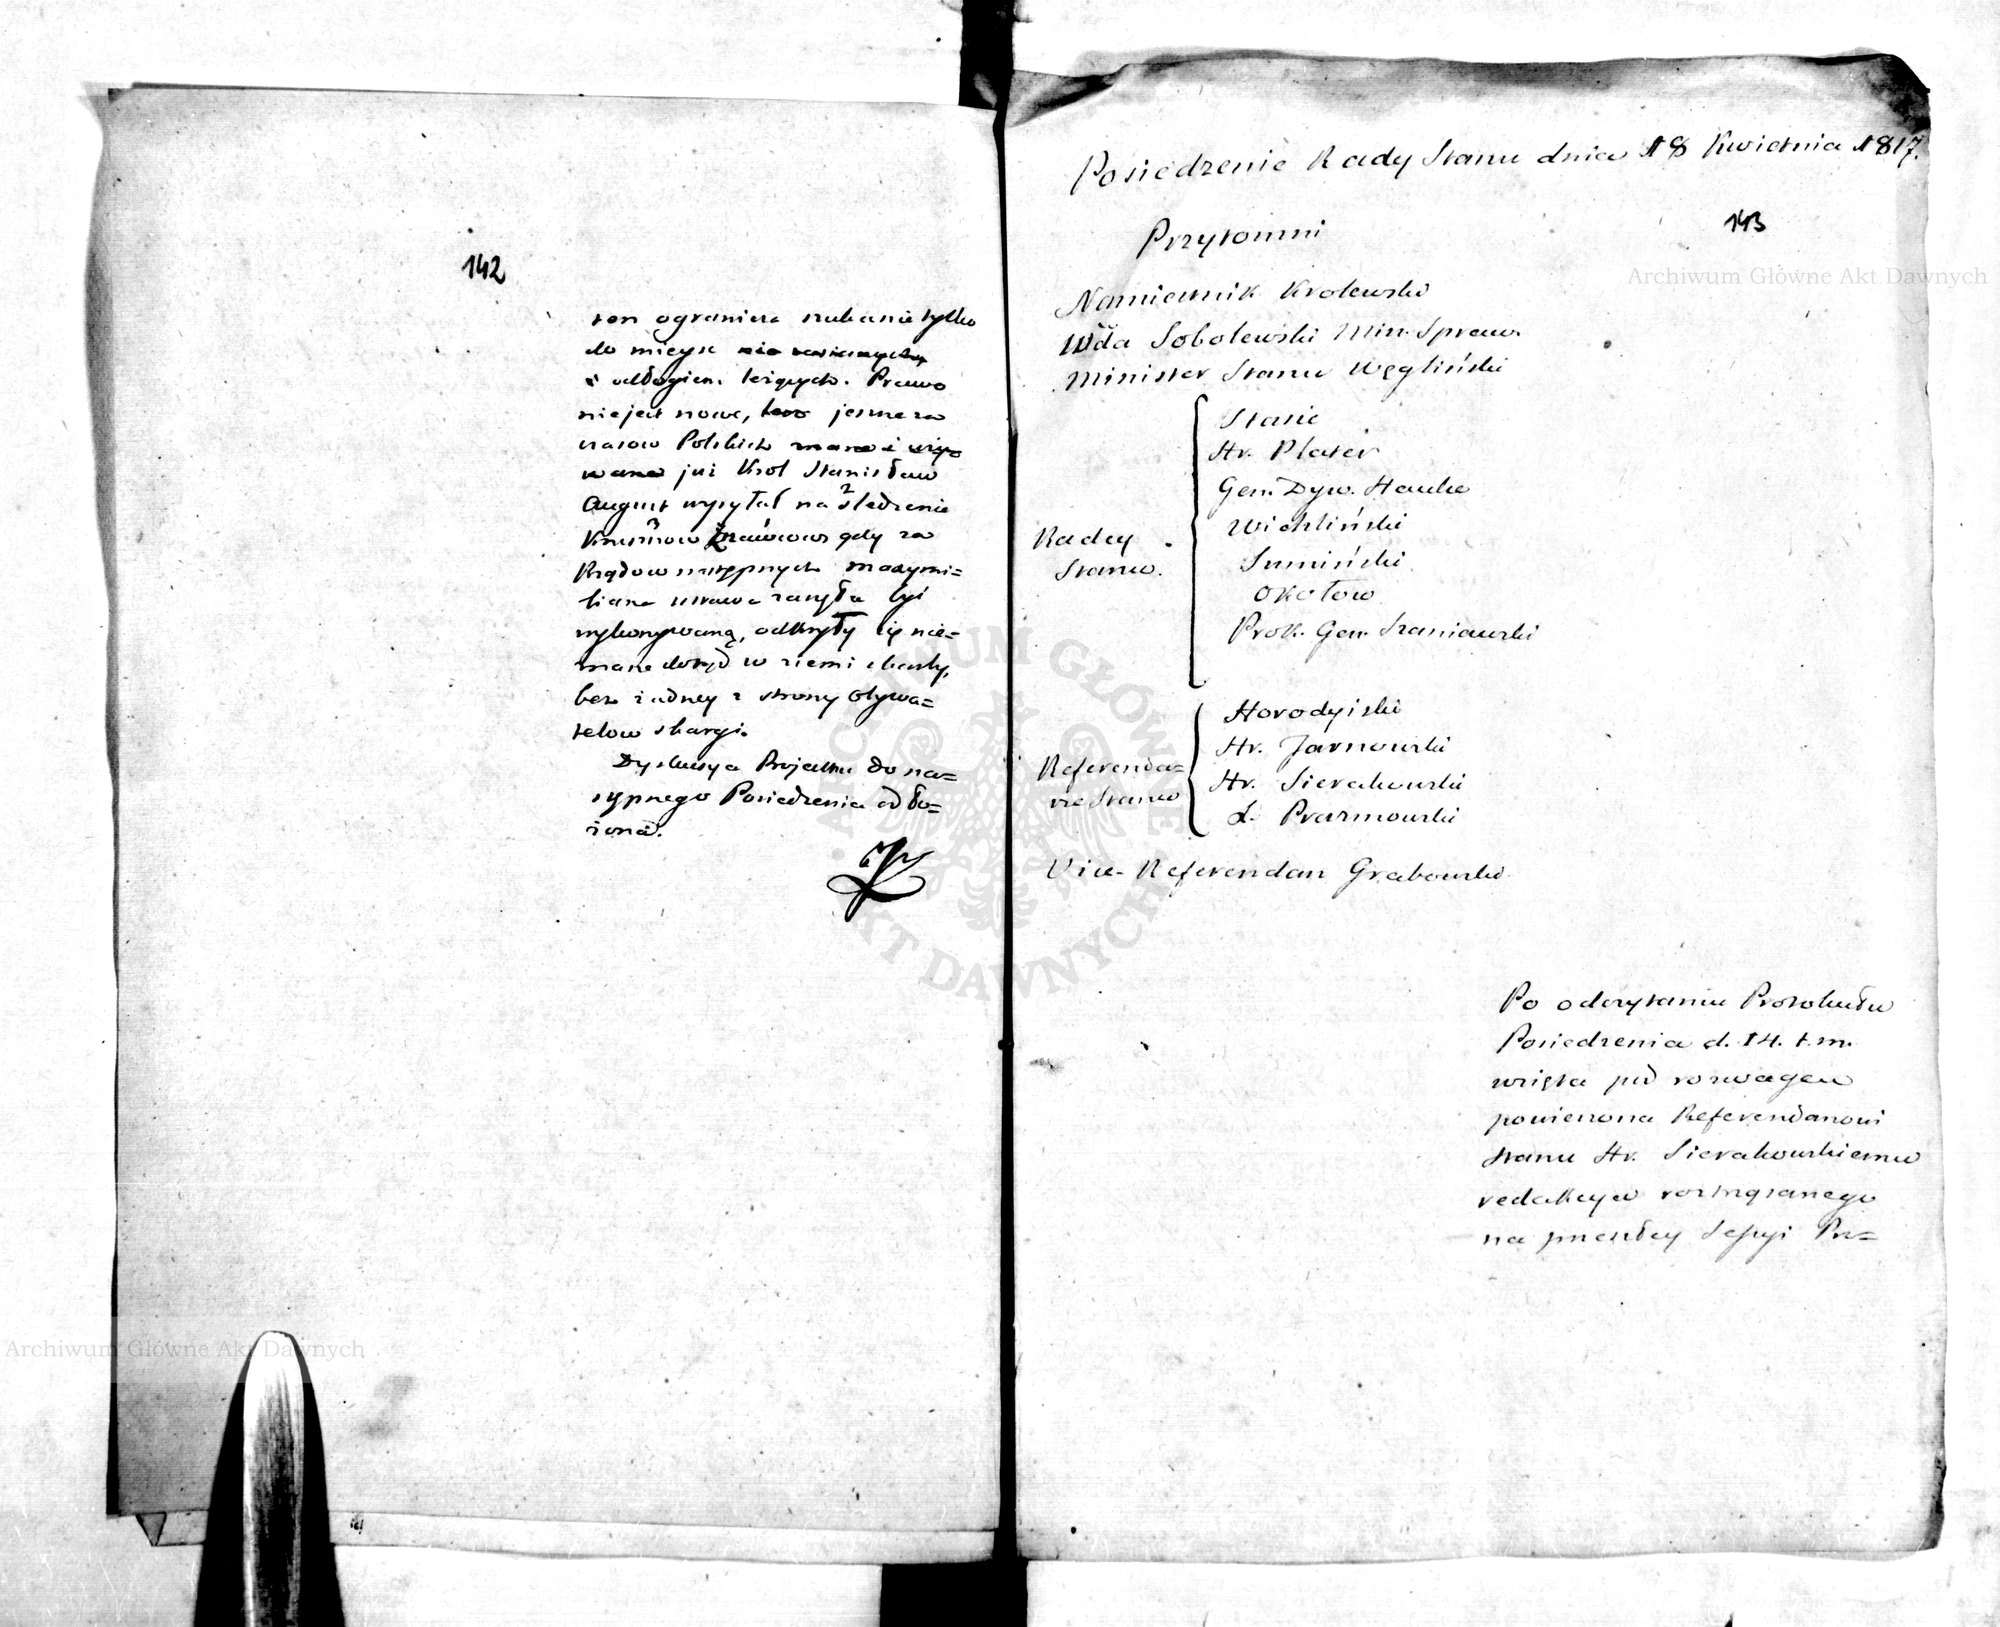 142
ten ogranicza szukanie tylko
do mieysc nie zasianych
i odłogiem leżących. Prawo
nie jest nowe, bo jeszcze za
czasow Polskich znane i używane
już Krol Stanisław
August wysyłał na śledzenie
Kruszcow Znawcow gdy za
Rządow następnych maxymi=
liana ustawa zaczęła być
wykonywaną, odkryły się nie=
znane dotąd w ziemi skarby,
bez żadney z strony Obywa=
telow skargi.
Dyskusya Projektu do na=
stępnego Posiedzenia odło=
żona.
Posiedzenie Rady Stanu dnia 18 Kwietnia 1817.
143
Przytomni
Namiestnik Krolewski
Wda Sobolewski Min. Spraw.
Minister Stanu Węgliński
Radcy Stanu.
Stasic
Hr. Plater
Gen. Dyw. Hauke
Wichliński
Sumiński
Okołow
Prok. Gen. Szaniawski
Referenda=
rze Stanu
Horodyiski
Hr. Jarnowski
Hr. Sierakowski
X. Prazmowski
Vice-Referendarz Grabowski
Po odczytaniu Protokułu
Posiedzenia d. 14. t. m.
wzięta pod rozwagę
powierzona Referendarzowi
Stanu Hr. Sierakowskiemu
redakcya roztrząsanego
na przeszłey Sessyi Pro=
Archiwum Główne Akt Dawnych
Archiwum Główne Akt Dawnych
ARCHIWUM GŁÓWNE AKT DAWNYCH